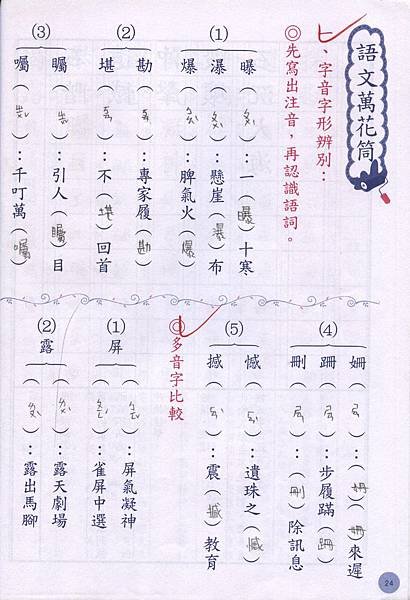 語文萬花筒
一、字音字形辨別：
◎先寫出注音，再認識語詞。
(1)
曝（ㄆㄨˋ）：一（曝）十寒
瀑（ㄆㄨˋ）：懸崖（瀑）布
爆（ㄅㄠˋ）：脾氣火（爆）
(2)
勘（ㄎㄢ）：專家履（勘）
堪（ㄎㄢ）：不（堪）回首
(3)
矚（ㄓㄨˇ）：引人（矚）目
囑（ㄓㄨˇ）：千叮萬（囑）
(4)
姍（ㄕㄢ）：（姍）（姍）來遲
跚（ㄕㄢ）：步履蹣（跚）
刪（ㄕㄢ）：（刪）除訊息
(5)
憾（ㄏㄢˋ）：遺珠之（憾）
撼（ㄏㄢˋ）：震（撼）教育
◎多音字比較
(1)
屏（ㄅㄧㄥˇ）：屏氣凝神
（ㄆㄧㄥˊ）：雀屏中選
(2)
露（ㄌㄨˋ）：露天劇場
（ㄌㄡˋ）：露出馬腳
24